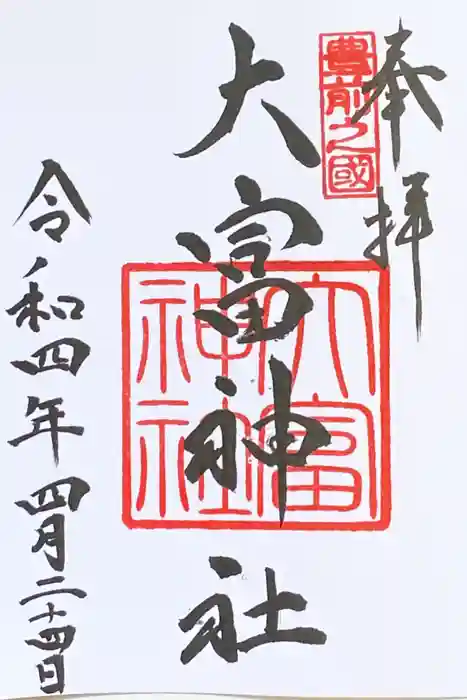 奉拝
豊前之國
大富神社
大富神社
令和四年四月二十四日